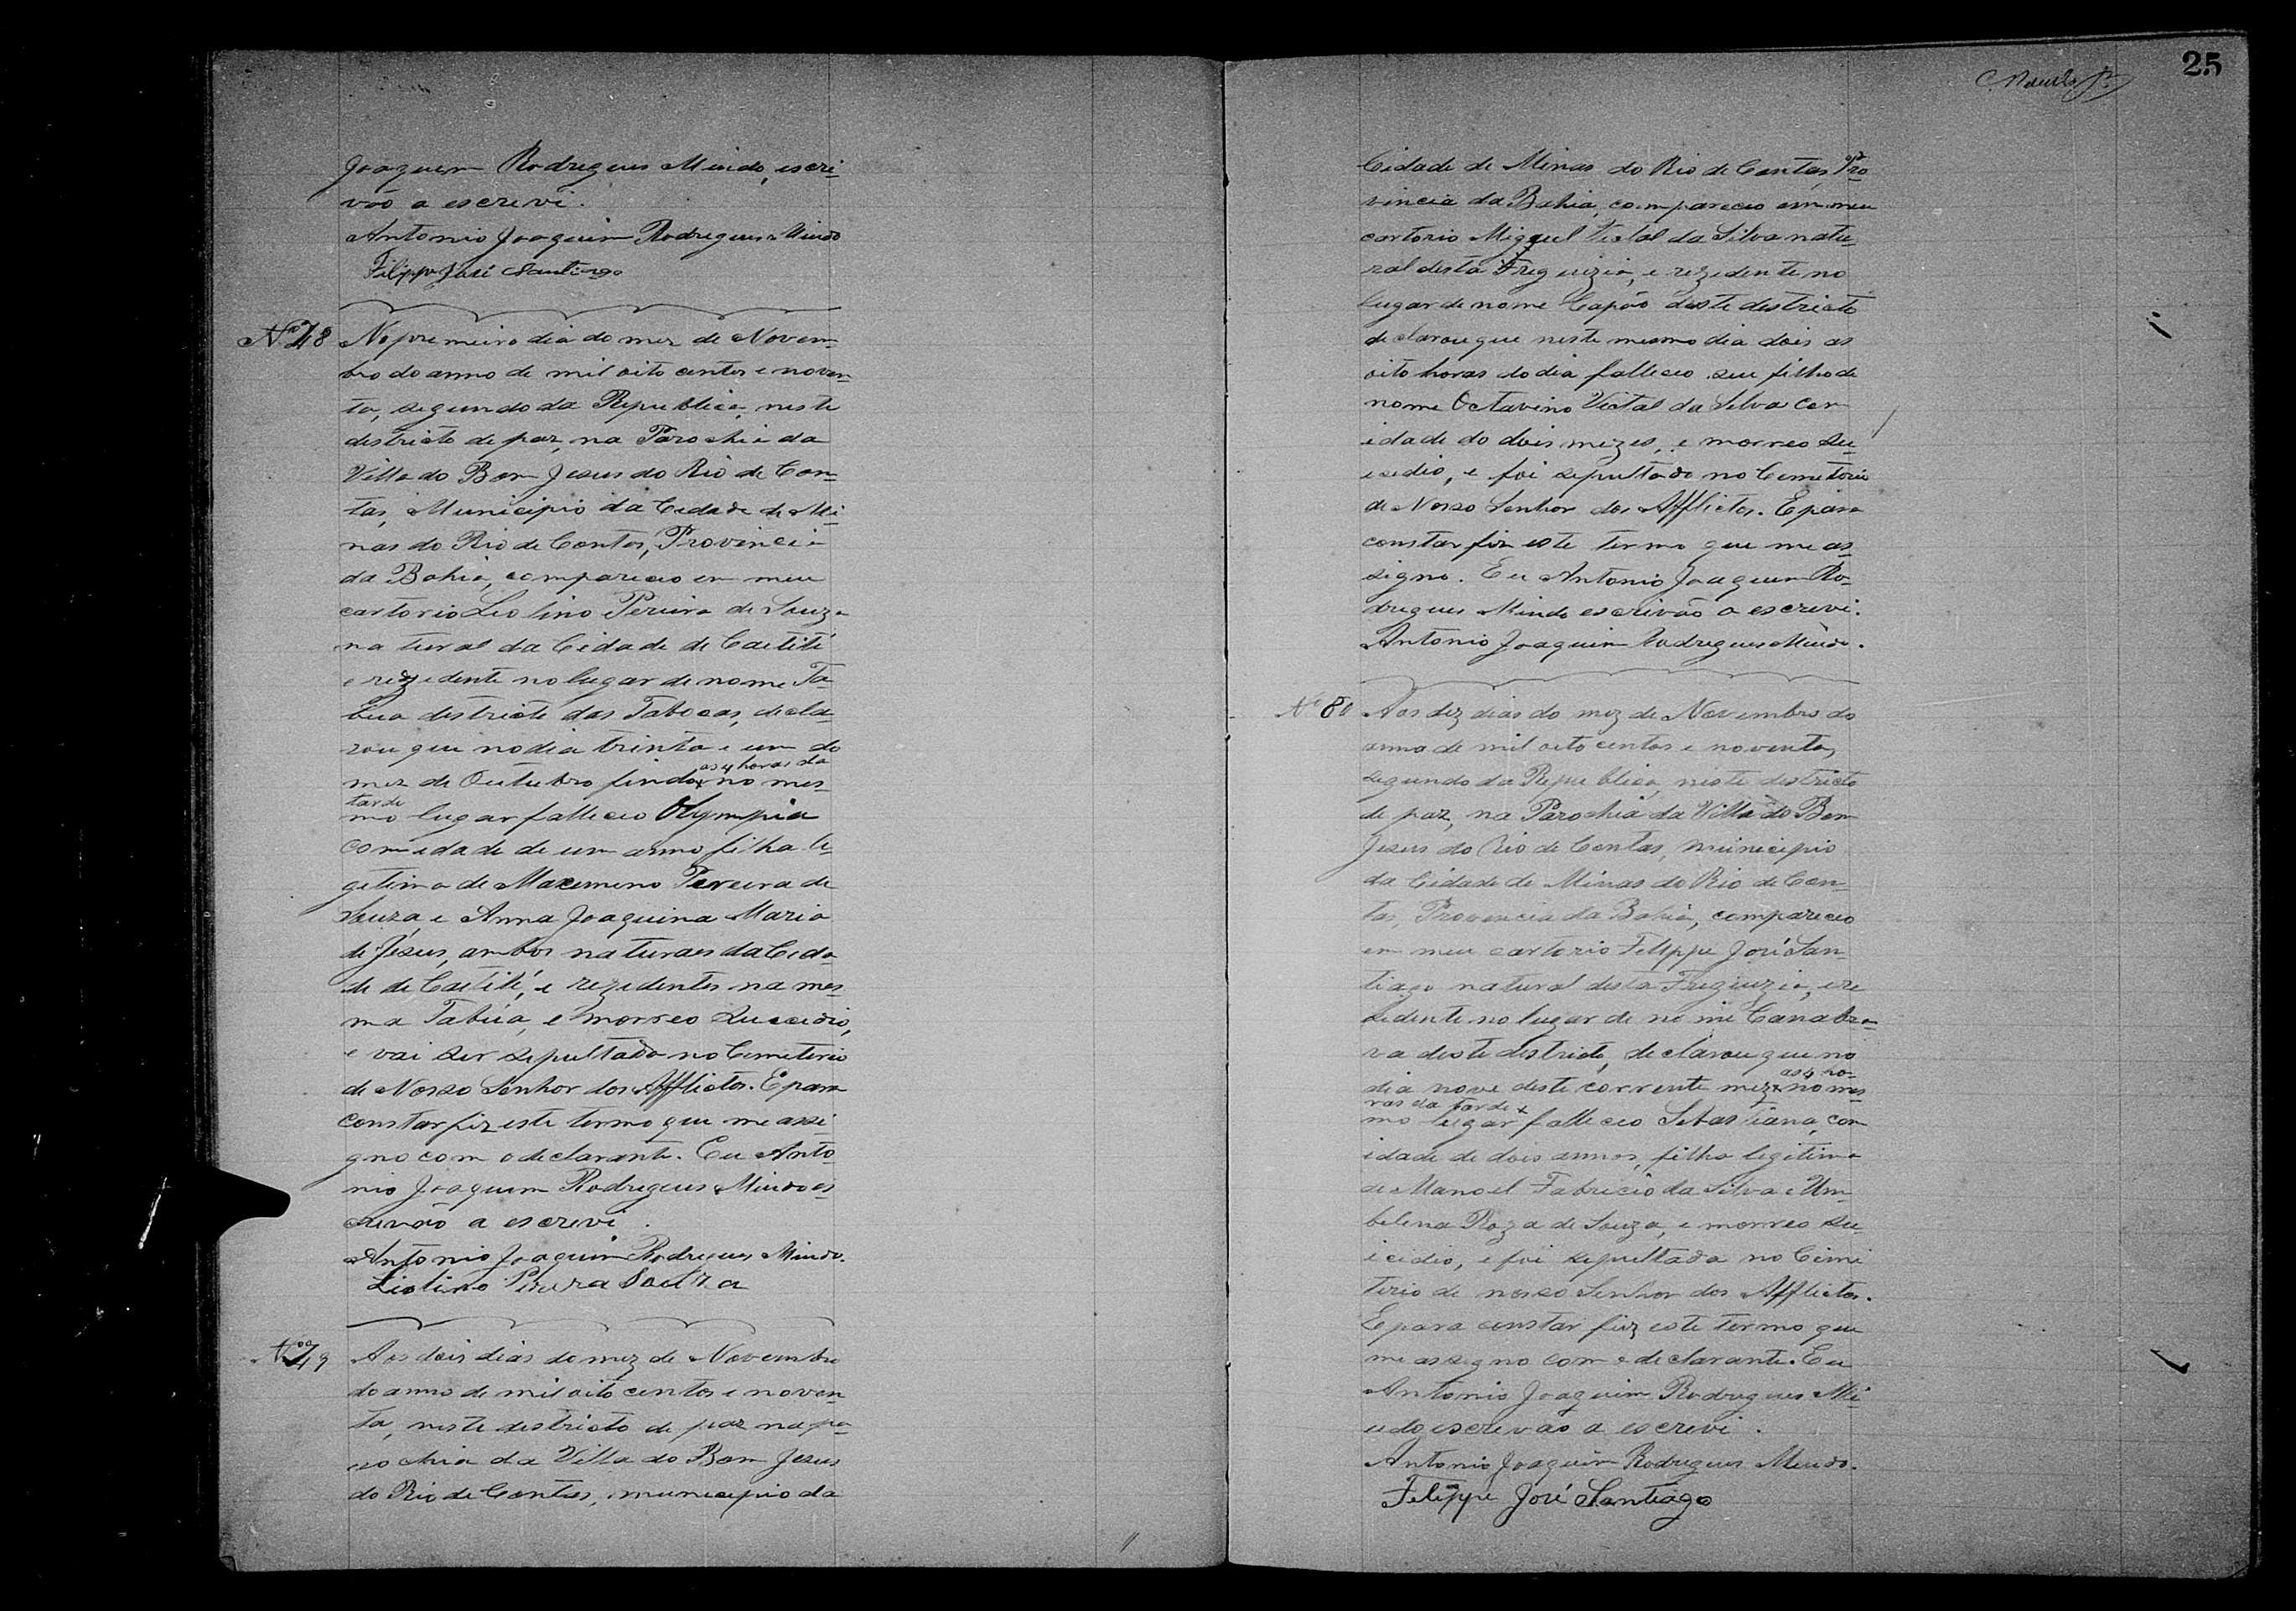 Joaquim Rodrigues Miudo, escri-
vão a escrevi.
Antonio Joaquim Rodrigues Miudo
Filippe José Santiago
Nº 78 No premeiro dia do mez de Novem-
bro do anno de mil oito centos e noven-
ta, segundo da Republica, neste
destricto de paz, na Parochia da
Villa do Bom Jesus do Rio de Con-
tas, Municipio da Cidade de Mi-
nas do Rio de Contas, Provincia
da Bahia, compareceo em meu
cartorio Leolino Pereira de Souza
natural da Cidade de Caetité
e rezedente no lugar de nome Ta-
bua destricto das Tabocas, decla-
rou que no dia trinta e um do
mez de Outubro findo x as 4 horas da
tarde no mes-
mo lugar falleceo Olympia
com edade de um anno filha le-
getima de Maxemino Pereira de
Souza e Anna Joaquina Maria
de Jesus, ambos naturaes da Cida-
de de Caetité, e rezedentes na mes-
ma Tabúa, e morreo Sucedio,
e vai ser sepultada no Cemeterio
de Nosso Senhor dos Afflictos. E para
constar fiz este termo que me assi
gno com o declarante. Eu Anto-
nio Joaquim Rodrigues Miudo es-
crivão a escrevi.
Antonio Joaquim Rodrigues Miudo.
Liolino Pereira Souza
Nº 79 Aos dois dias do mez de Novembro
do anno de mil oito centos e noven-
ta, neste destricto de paz na pa-
rochia da Villa do Bom Jesus
do Rio de Contas, municipio da
25
Cidade de Minas do Rio de Contas, Pro-
vincia da Bahia, compareceo em meu
cartorio Miguel Victal da Silva natu-
ral desta Freguizia, e rezedente no
lugar de nome Capão deste destricto
declarou que neste mesmo dia dois as
oito horas do dia falleceo seu filho de
nome Octavino Victal da Silva com
idade do dois mezes, e morreo su-
icedio, e foi sepultado no Cemeterio
de Nosso Senhor dos Afflictos. E para
constar fiz este termo que me as-
signo. Eu Antonio Joaquim Ro-
drigues Miudo escrivão a escrevi.
Antonio Joaquim Rodrigues Miudo.
Nº 80 Aos dez dias do mez de Novembro do
anno de mil oito centos e noventa,
segundo da Republica, neste destricto
de paz, na Parochia da Villa do Bom
Jesus do Rio de Contas, municipio
da Cidade de Minas do Rio de Con-
tas, Provencia da Bahia, compareceo
em meu cartorio Felippe José San-
tiago natural desta Freguizia, e re
zedente no lugar de nome Canabra-
va deste destricto, declarou que no
dia nove deste corrente mez x as 4 ho-
ras da tarde x no mes-
mo lugar falleceo Sebastiana, com
idade de dois annos, filha legitima
de Manoel Fabricio da Silva e Um-
belena Roza de Souza, e morreo su-
icedio, e foi sepultada no Cimi
terio de nosso Senhor dos Afflictos.
E para constar fiz este termo que
me assegno com o declarante. Eu
Antonio Joaquim Rodrigues Mi-
udo escrevão a escrevi.
Antonio Joaquim Rodrigues Miudo.
Felippe José Santiago